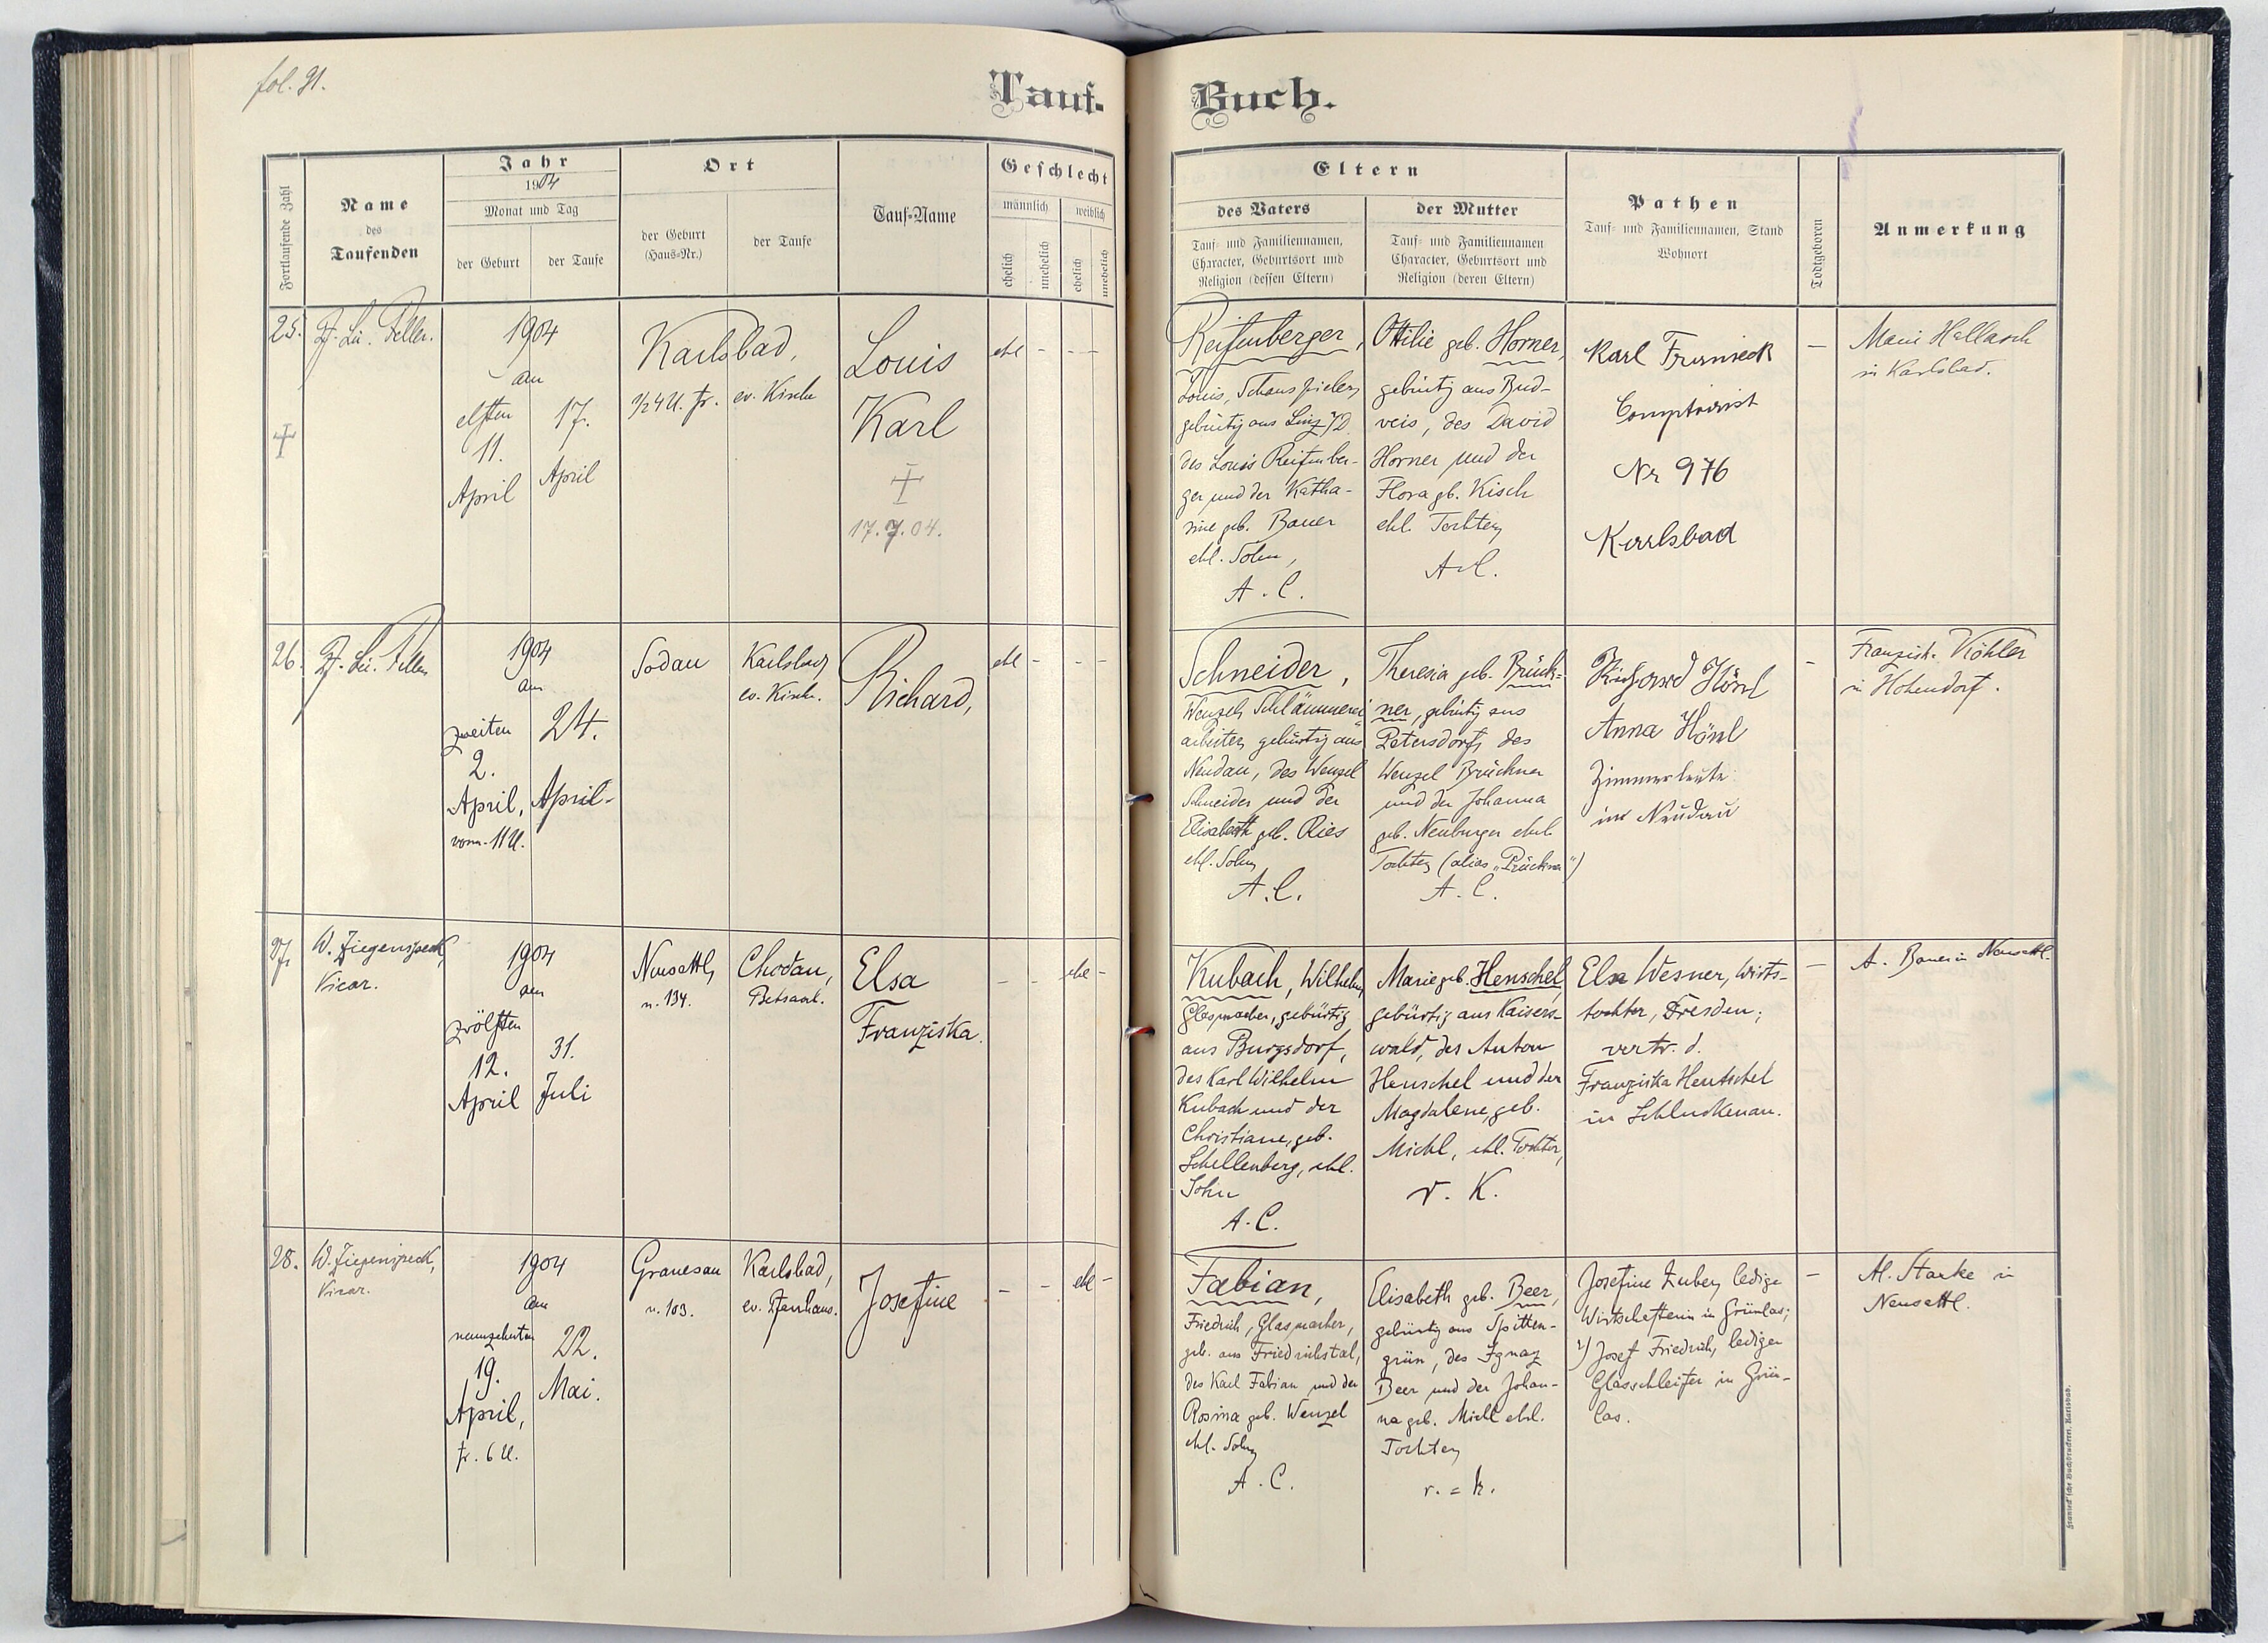 fol. 91.
Tauf-
Buch.
Fortlaufende Zahl
Name
des
Taufenden
Jahr
1904
Monat und Tag
der Geburt
der Taufe
Ort
der Geburt
(Haus-Nr.)
der Taufe
Tauf-Name
Geschlecht
männlich
weiblich
ehelich
unehelich
ehelich
unehelich
Eltern
des Vaters
Tauf- und Familiennamen,
Character, Geburtsort und
Religion (dessen Eltern)
der Mutter
Tauf- und Familiennamen
Character, Geburtsort und
Religion (deren Eltern)
Pathen
Tauf- und Familiennamen, Stand
Wohnort
Todtgeboren
Anmerkung
25.
Feller.
1904
am
elften
11.
April
17.
April
Karlsbad,
1/2 4 U. fr.
ev. Kirche
Louis
Karl
17.7.04.
ehl - - -
Reifenberger,
Louis, Schauspieler,
gebürtig aus Linz a/D
des Louis Reifenber-
ger und der Katha-
rine geb. Bauer
ehl. Sohn,
A. C.
Ottilie geb. Horner,
gebürtig aus Bud-
weis, des David
Horner und der
Flora gb. Kisch
ehl. Tochter
A.C.
Karl
Comptoirist
Nr 976
Karlsbad
-
Marie Hallasch
in Karlsbad.
26.
Feller
1904
am
zweiten
2.
April,
vorm. 11 U.
24.
April-
Sodau
Karlsbad
ev. Kirche.
Richard,
ehl - - -
Schneider,
Wenzel, Schlämmerei
arbeiter, gebürtig aus
Neudau, des Wenzel
Schneider und der
Elisabeth geb. Ries
ehl. Sohn
A.C.
Theresia geb. Brück-
ner, gebürtig aus
Petersdorf, des
Wenzel Brückner
und der Johanna
geb. Neuburger ehel.
Tochter (alias „Prückner")
A. C.
Richard Hönl
Anna Hönl
Zimmerleute
in Neudau
-
Franzisk. Köhler
in Hohendorf.
27.
W. Ziegenspeck,
Vicar.
1904
am
zwölften
12.
April
31.
Juli
Neusattl,
n. 134.
Chodau,
Betsaal.
Elsa
Franziska.
- - ehl -
Kubach, Wilhelm,
Glasmacher, gebürtig
aus Burgsdorf,
des Karl Wilhelm
Kubach und der
Christiane, geb.
Schellenberg, ehl.
Sohn
A. C.
Marie geb. Henschel,
gebürtig aus Kaisers-
wald, des Anton
Henschel und der
Magdalene, geb.
Michl, ehl. Tochter,
r. K.
Elsa Wesner, Wirts-
tochter, Dresden;
vertr. d.
Franziska Hentschel
in Schluckenau.
-
A. Bauer in Neusattl.
28.
W. Ziegenspeck,
Vicar.
1904
am
neunzehnten
19.
April,
fr. 6 U.
22.
Mai.
Granesau
n. 103.
Karlsbad,
ev. Pfarrhaus.
Josefine
- - ehl -
Fabian,
Friedrich, Glasmacher,
geb. aus Friedrichstal,
des Karl Fabian und der
Rosina geb. Wenzel
ehl. Sohn
A. C.
Elisabeth geb. Beer,
gebürtig aus Spitten-
grün, des Ignaz
Beer und der Johan-
na geb. Michl ehel.
Tochter
r. = k.
Josefine Zuber, ledige
Wirtschafterin in Grünlas;
2) Josef Friedrich, lediger
Glasschleifer in Grün-
las.
-
M. Starke in
Neusattl.
Franieck'sche Buchdruckerei, Karlsbad.